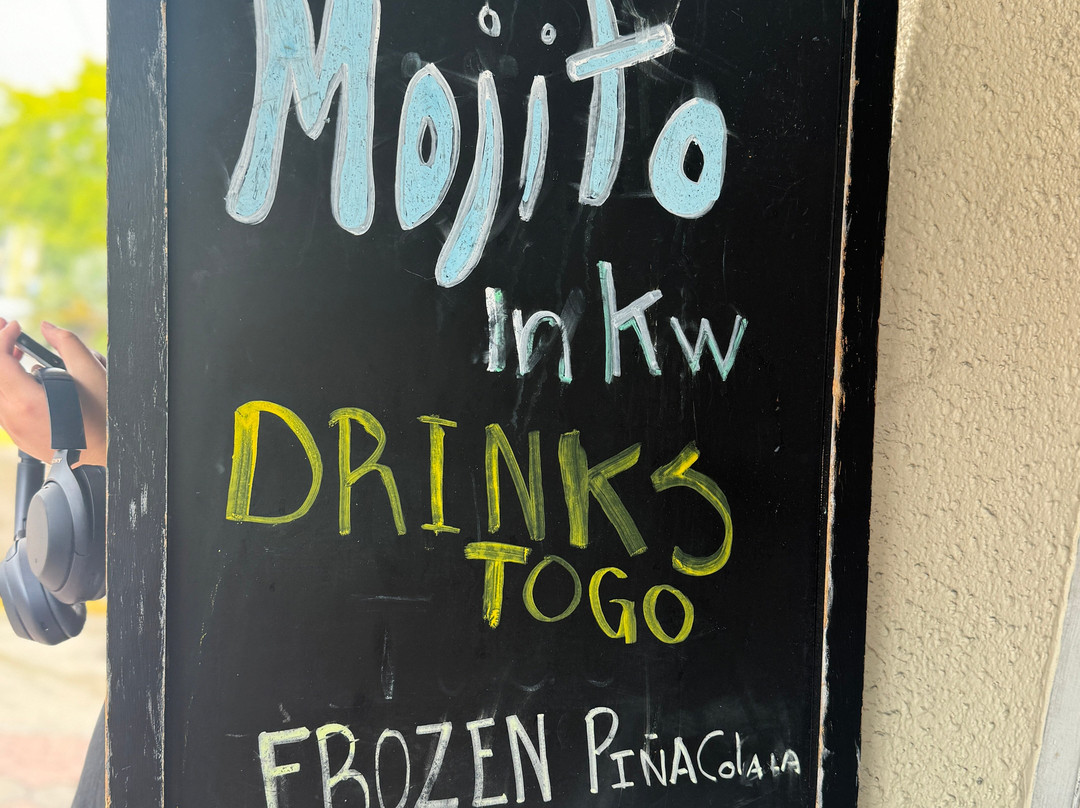 Mojito
In KW
DRINKS
TO GO
FROZEN PIÑA ColaLA